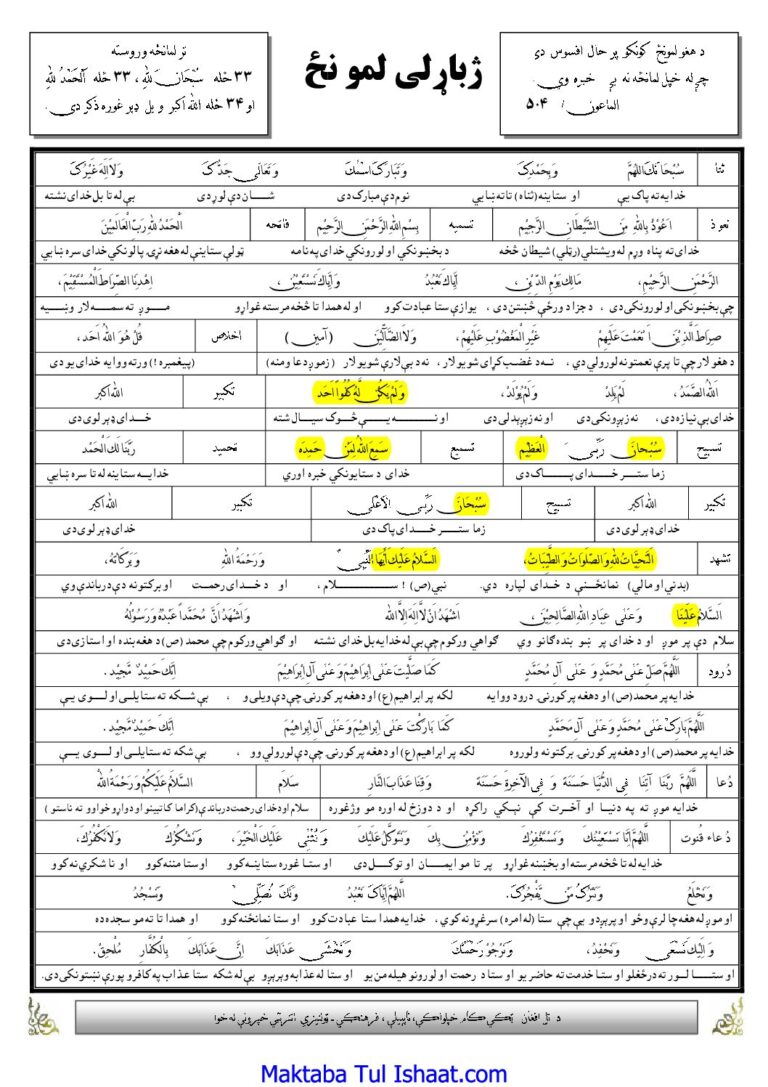 د هغو لمونځ کونکو پر حال افسوس دي
چې له خپل لمانځه نه بې خبره وي.
الماعون / ۵۰۴
ژباړلی لمونځ
تر لمانځه وروسته
۳۳ ځله سُبْحَانَ اللهِ، ۳۳ ځله اَلْحَمْدُ لِلهِ
او ۳۴ ځله الله اکبر و یل ډېر غوره ذکر دی.
ثنا سُبْحَانَكَ اللهُمَّ وَبِحَمْدِكَ وَتَبَارَكَ اسْمُكَ وَتَعَالَى جَدُّكَ وَلَا اِلَهَ غَيْرُكَ
خدایه ته پاک یې او ستاینه (ثناه) تاته ښایي نوم دې مبارک دی شان دې لوړ دی بې له تا بل خدای نشته
تعوذ اَعُوْذُ بِاللهِ مِنَ الشَّيْطَانِ الرَّجِيْمِ تسمیه بِسْمِ اللهِ الرَّحْمَنِ الرَّحِيْمِ فاتحه اَلْحَمْدُ لِلهِ رَبِّ الْعَالَمِيْنَ
خدای ته پناه وړم له ویشتلي (رټلي) شیطان څخه د بخښونکي او لورونکي خدای په نامه ټولې ستاینې له هغه نړۍ پالونکي خدای سره ښایي
اَلرَّحْمَنِ الرَّحِيْمِ، مَالِكِ يَوْمِ الدِّيْنِ، اِيَّاكَ نَعْبُدُ وَاِيَّاكَ نَسْتَعِيْنُ، اِهْدِنَا الصِّرَاطَ الْمُسْتَقِيْمَ،
چې بخښونکی او لورونکی دی، د جزا د ورځې څښتن دی، یوازې ستا عبادت کوو او له همدا تا څخه مرسته غواړو موږ ته سمه لار وښیه
صِرَاطَ الَّذِيْنَ اَنْعَمْتَ عَلَيْهِمْ غَيْرِ الْمَغْضُوْبِ عَلَيْهِمْ، وَلَا الضَّالِّيْنَ (آمین) اخلاص قُلْ هُوَ اللهُ اَحَد،
د هغو لار چې تا پرې نعمتونه لورولي دي، نه د غضب کړای شویو لار، نه د بې لارې شویو لار (زموږ دعا ومنه) (پیغمبره!) ورته ووایه خدای یو دی
اَللهُ الصَّمَدُ، لَمْ يَلِدْ وَلَمْ يُوْلَدْ، وَلَمْ يَكُنْ لَّهُ كُفُوًا اَحَد تکبیر الله اکبر
خدای بې نیازه دی، نه زېږونکی دی او نه زېږېدلی دی او نه یې څوک سیال شته خدای ډېر لوی دی
تسبیح سُبْحَانَ رَبِّيَ الْعَظِيْم تسمیع سَمِعَ اللهُ لِمَنْ حَمِدَه تحمید رَبَّنَا لَكَ الْحَمْد
زما ستر خدای پاک دی خدای د ستایونکي خبره اوري خدایه ستاینه له تا سره ښایي
تکبیر الله اکبر تسبیح سُبْحَانَ رَبِّيَ الْاَعْلَى تکبیر الله اکبر
خدای ډېر لوی دی زما ستر خدای پاک دی خدای ډېر لوی دی
تشهد اَلتَّحِيَّاتُ لِلهِ وَالصَّلَوَاتُ وَالطَّيِّبَاتُ، اَلسَّلَامُ عَلَيْكَ اَيُّهَا النَّبِيُّ وَرَحْمَةُ اللهِ وَبَرَكَاتُهُ،
(بدني او مالي) نمانځنې د خدای لپاره دي. نبي (ص)! سلام، او د خدای رحمت او برکتونه دې درباندې وي
اَلسَّلَامُ عَلَيْنَا وَعَلَى عِبَادِ اللهِ الصَّالِحِيْنَ، اَشْهَدُ اَنْ لَّا اِلَهَ اِلَّا اللهُ وَاَشْهَدُ اَنَّ مُحَمَّداً عَبْدُهُ وَرَسُوْلُهُ
سلام دې پر موږ او د خدای پر ښو بنده ګانو وي ګواهي ورکوم چې بې له خدایه بل خدای نشته او ګواهي ورکوم چې محمد (ص) د هغه بنده او استازی دی
دُرود اَللهُمَّ صَلِّ عَلَى مُحَمَّدٍ وَ عَلَى آلِ مُحَمَّدٍ كَمَا صَلَّيْتَ عَلَى اِبْرَاهِيْمَ وَ عَلَى آلِ اِبْرَاهِيْمَ اِنَّكَ حَمِيْدٌ مَّجِيْد.
خدایه پر محمد (ص) او د هغه پر کورنۍ درود ووایه لکه پر ابراهیم (ع) او د هغه پر کورنۍ چې دې ویلی و، بې شکه ته ستایلی او لوی یې
اَللهُمَّ بَارِكْ عَلَى مُحَمَّدٍ وَ عَلَى آلِ مُحَمَّدٍ كَمَا بَارَكْتَ عَلَى اِبْرَاهِيْمَ وَ عَلَى آلِ اِبْرَاهِيْمَ اِنَّكَ حَمِيْدٌ مَّجِيْد.
خدایه پر محمد (ص) او د هغه پر کورنۍ برکتونه ولوروه لکه پر ابراهیم (ع) او د هغه پر کورنۍ چې دې لورولي وو، بې شکه ته ستایلی او لوی یې
دُعا اَللهُمَّ رَبَّنَا آتِنَا فِي الدُّنْيَا حَسَنَةً وَ فِي الْآخِرَةِ حَسَنَةً وَقِنَا عَذَابَ النَّارِ سَلَام اَلسَّلَامُ عَلَيْكُمْ وَرَحْمَةُ اللهِ
خدایه موږ ته په دنیا او آخرت کې نېکي راکړه او د دوزخ له اوره مو وژغوره سلام او د خدای رحمت درباندې (کراما کاتبینو او دواړو خواوو ته ناستو)
دُعاء قُنوت اَللهُمَّ اِنَّا نَسْتَعِيْنُكَ وَنَسْتَغْفِرُكَ وَنُؤْمِنُ بِكَ وَنَتَوَكَّلُ عَلَيْكَ وَنُثْنِي عَلَيْكَ الْخَيْرَ، وَنَشْكُرُكَ وَلَا نَكْفُرُكَ،
خدایه له تا څخه مرسته او بخښنه غواړو پر تا مو ایمان او توکل دی او ستا غوره ستاینه کوو او ستا مننه کوو او نا شکري نه کوو
وَنَخْلَعُ وَنَتْرُكُ مَنْ يَّفْجُرُكَ. اَللهُمَّ اِيَّاكَ نَعْبُدُ وَلَكَ نُصَلِّي وَنَسْجُدُ
او موږ له هغه چا لرې څو او پرېږدو یې چې ستا (له امره) سرغړونه کوي، خدایه همدا ستا عبادت کوو او ستا نمانځنه کوو او همدا تا ته مو سجده ده
وَ اِلَيْكَ نَسْعَى وَنَحْفِدُ، وَنَرْجُوْ رَحْمَتَكَ وَنَخْشَى عَذَابَكَ اِنَّ عَذَابَكَ بِالْكُفَّارِ مُلْحِقٌ.
او ستا لور ته درځغلو او ستا خدمت ته حاضر یو او ستا د رحمت او لورونو هیله من یو او ستا له عذابه وېرېږو بې له شکه ستا عذاب په کافرو پورې نښتونکی دی.
Maktaba Tul Ishaat.com